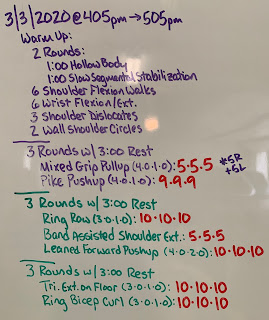 3/3/2020 @ 405pm → 505pm
Warm Up:
2 Rounds:
1:00 Hollow Body
1:00 Slow Segmental Stabilization
6 Shoulder Flexion Walks
6 Wrist Flexion/Ext.
3 Shoulder Dislocates
2 Wall Shoulder Circles
3 Rounds w/ 3:00 Rest
Mixed Grip Pullup (4.0.1.0): 5.5.5 *5R
+5L
Pike Pushup (4.0.1.0): 9.9.9
3 Rounds w/ 3:00 Rest
Ring Row (3.0.1.0): 10.10.10
Band Assisted Shoulder Ext.: 5.5.5
Leaned Forward Pushup (4.0.2.0): 10.10.10
3 Rounds w/ 3:00 Rest
Tri. Ext. on Floor (3.0.1.0): 10.10.10
Ring Bicep Curl (3.0.1.0): 10.10.10